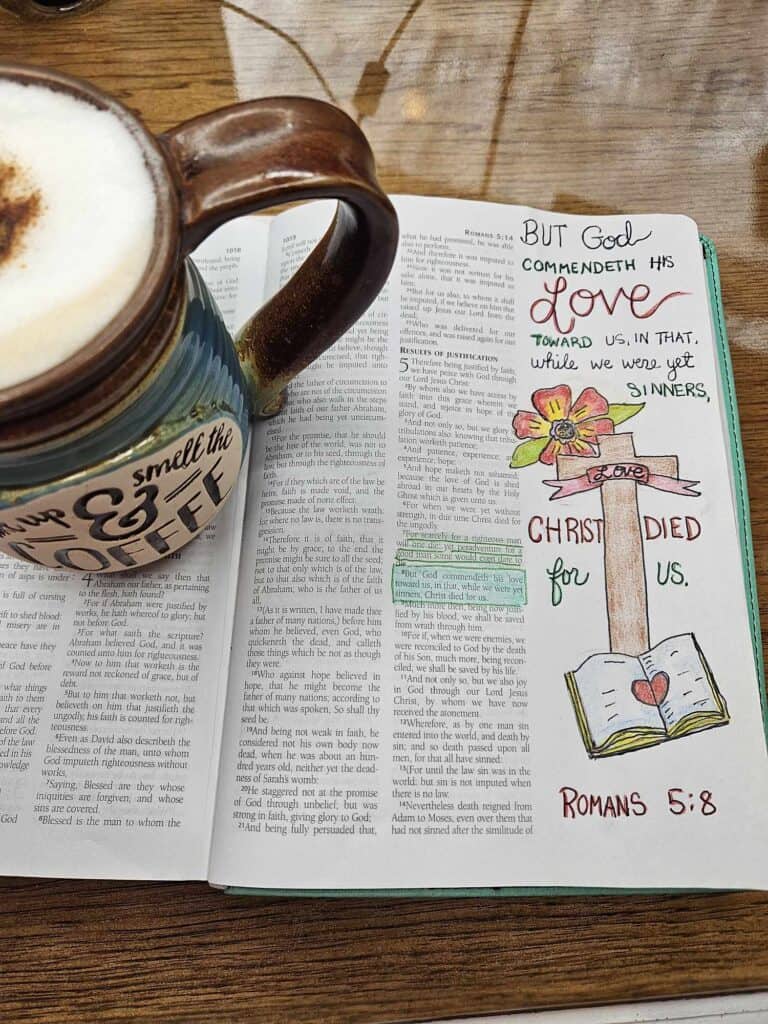 up & smell the
COFFEE
1018
4 What shall we say then that
Abraham our father, as pertaining
to the flesh, hath found?
2For if Abraham were justified by
works, he hath whereof to glory; but
not before God.
3For what saith the scripture?
Abraham believed God, and it was
counted unto him for righteousness.
4Now to him that worketh is the
reward not reckoned of grace, but of
debt.
5But to him that worketh not, but
believeth on him that justifieth the
ungodly, his faith is counted for righ-
teousness.
6Even as David also describeth the
blessedness of the man, unto whom
God imputeth righteousness without
works,
7Saying, Blessed are they whose
iniquities are forgiven, and whose
sins are covered.
8Blessed is the man to whom the
1019
the father of circumcision to
who are not of the circumcision
who also walk in the steps
faith of our father Abraham,
which he had being yet uncircum-
cised.
13For the promise, that he should
be the heir of the world, was not to
Abraham, or to his seed, through the
law, but through the righteousness of
faith.
14For if they which are of the law be
heirs, faith is made void, and the
promise made of none effect:
15Because the law worketh wrath:
for where no law is, there is no trans-
gression.
16Therefore it is of faith, that it
might be by grace; to the end the
promise might be sure to all the seed;
not to that only which is of the law,
but to that also which is of the faith
of Abraham, who is the father of us
all,
17(As it is written, I have made thee
a father of many nations,) before him
whom he believed, even God, who
quickeneth the dead, and calleth
those things which be not as though
they were.
18Who against hope believed in
hope, that he might become the
father of many nations; according to
that which was spoken, So shall thy
seed be.
19And being not weak in faith, he
considered not his own body now
dead, when he was about an hun-
dred years old, neither yet the dead-
ness of Sarah's womb:
20He staggered not at the promise
of God through unbelief; but was
strong in faith, giving glory to God;
21And being fully persuaded that,
ROMANS 5:14
what he had promised, he was able
also to perform.
22And therefore it was imputed to
him for righteousness.
23Now it was not written for his
sake alone, that it was imputed to
him;
24But for us also, to whom it shall
be imputed, if we believe on him that
raised up Jesus our Lord from the
dead;
25Who was delivered for our
offences, and was raised again for our
justification.
RESULTS OF JUSTIFICATION
5 Therefore being justified by faith,
we have peace with God through
our Lord Jesus Christ:
2By whom also we have access by
faith into this grace wherein we
stand, and rejoice in hope of the
glory of God.
3And not only so, but we glory in
tribulations also: knowing that tribu-
lation worketh patience;
4And patience, experience; and
experience, hope:
5And hope maketh not ashamed;
because the love of God is shed
abroad in our hearts by the Holy
Ghost which is given unto us.
6For when we were yet without
strength, in due time Christ died for
the ungodly.
7For scarcely for a righteous man
will one die: yet peradventure for a
good man some would even dare to
8But God commendeth his love
toward us, in that, while we were yet
sinners, Christ died for us.
9Much more then, being now justi-
fied by his blood, we shall be saved
from wrath through him.
10For if, when we were enemies, we
were reconciled to God by the death
of his Son, much more, being recon-
ciled, we shall be saved by his life.
11And not only so, but we also joy
in God through our Lord Jesus
Christ, by whom we have now
received the atonement.
12Wherefore, as by one man sin
entered into the world, and death by
sin; and so death passed upon all
men, for that all have sinned:
13(For until the law sin was in the
world: but sin is not imputed when
there is no law.
14Nevertheless death reigned from
Adam to Moses, even over them that
had not sinned after the similitude of
BUT God
COMMENDETH HIS
Love
TOWARD US, IN THAT,
while we were yet
SINNERS,
Love
CHRIST DIED
for US.
ROMANS 5:8